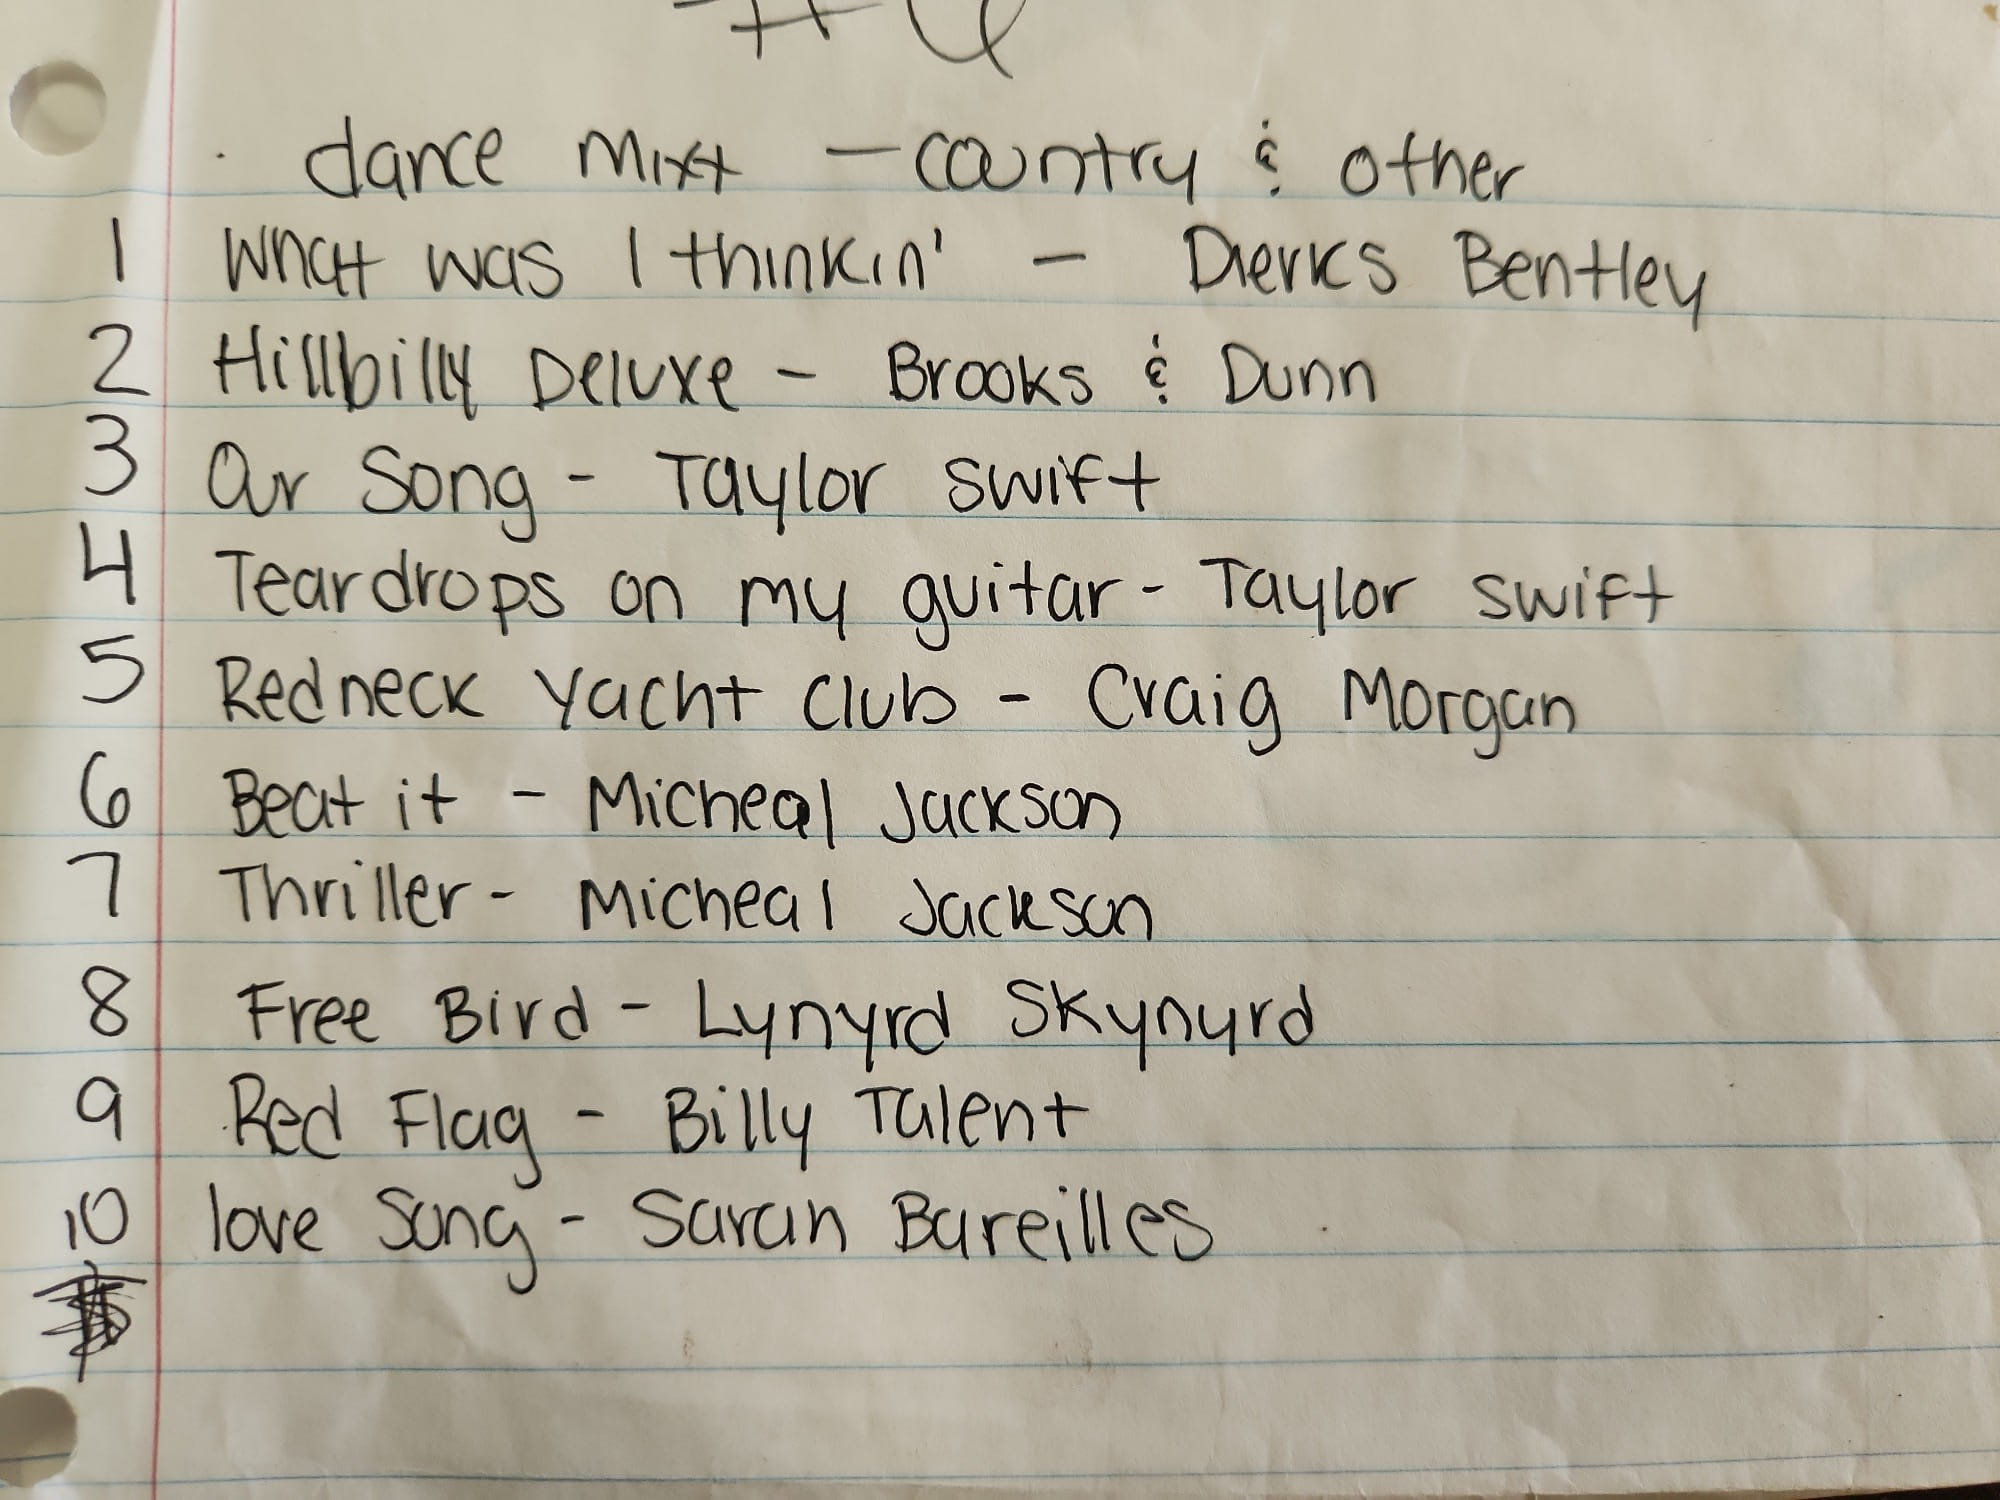 dance mixx - country & other
1 What was I thinkin' - Dierks Bentley
2 Hillbilly Deluxe - Brooks & Dunn
3 Our Song - Taylor swift
4 Teardrops on my guitar - Taylor swift
5 Redneck Yacht Club - Craig Morgan
6 Beat it - Micheal Jackson
7 Thriller - Micheal Jackson
8 Free Bird - Lynyrd Skynyrd
9 Red Flag - Billy Talent
10 love Song - Sarah Bareilles